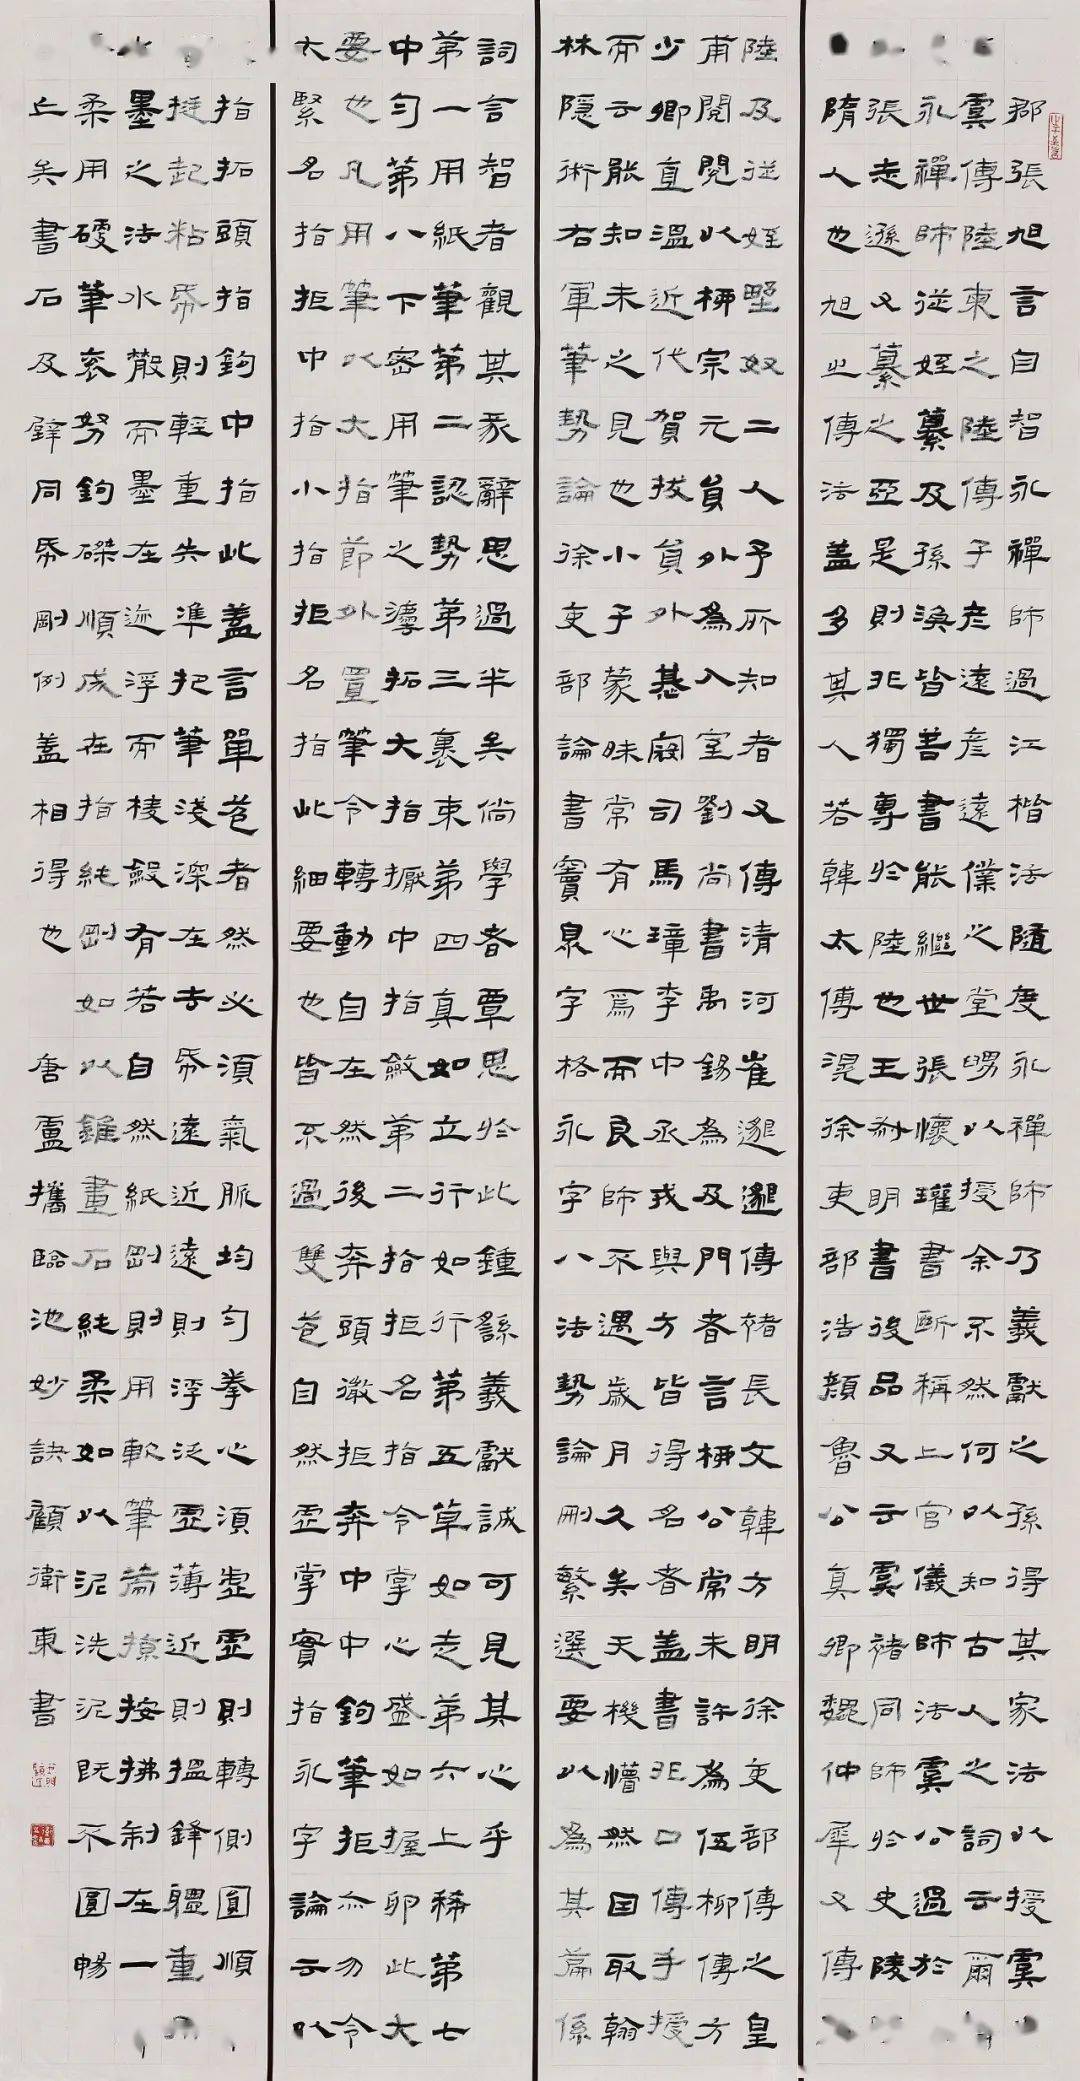 郡張旭言自智永禪師過江楷法隨度永禪師乃羲獻之孫得其家法以授虞
虞傳陸柬之陸傳子彥遠彥遠僕之堂舅以授余不然何以知古人之詞云爾
永禪師從姪纂及孫渙皆善書能繼世張懷瓘書斷稱上官儀師法虞公過於
張志遜又纂之亞是則非獨專於陸也王叔明書後品又云虞褚同師於史陵
隋人也旭之傳法蓋多其人若韓太傅滉徐吏部浩顏魯公真卿魏仲犀又傳
陸及從姪野奴二人予所知者又傳清河崔邈邈傳褚長文韓方明徐吏部傳之皇
甫閱閱以柳宗元員外為入室劉尚書禹錫為及門者言柳公常未許為伍柳傳方
少卿直溫近代賀拔員外惎寇司馬璋李中丞戎與方皆得名者蓋書非口傳手授
而云能知未之見也小子蒙昧常有心焉而良師不遇歲月久矣天機懵然因取翰
林隱術右軍筆勢論徐吏部論書竇臮字格永字八法勢論刪繁選要以為其篇係
詞言智者觀其彖辭思過半矣倘學者覃思於此鍾繇羲獻誠可見其心乎
第一用紙筆第二認勢第三裹束第四真如立行如行第五草如走第六上稀第七
中勻第八下密用筆之法拓大指擫中指斂第二指拒名指令掌心盛如握卵此大
要也凡用筆以大指節外置筆令轉動自在然後奔頭徹拒奔中中鉤筆拒亦勿令
太緊名指拒中指小指拒名指此細要也皆不過雙苞自然虛掌實指永字論云以
指拓頭指鉤中指此蓋言單苞者然必須氣脈均勻拳心須虛虛則轉側圓順
挺起粘帋則輕重失準把筆淺深在去帋遠近遠則浮泛虛薄近則搵鋒體重
墨之法水散而墨在迹浮而棱斂有若自然紙剛則用軟筆策掠按拂制在一
柔用硬筆袞努鉤磔順成在指純剛如以錐畫石純柔如以泥洗泥既不圓暢
亡矣書石及壁同帋剛例蓋相得也 唐盧攜臨池妙訣顧衛東書